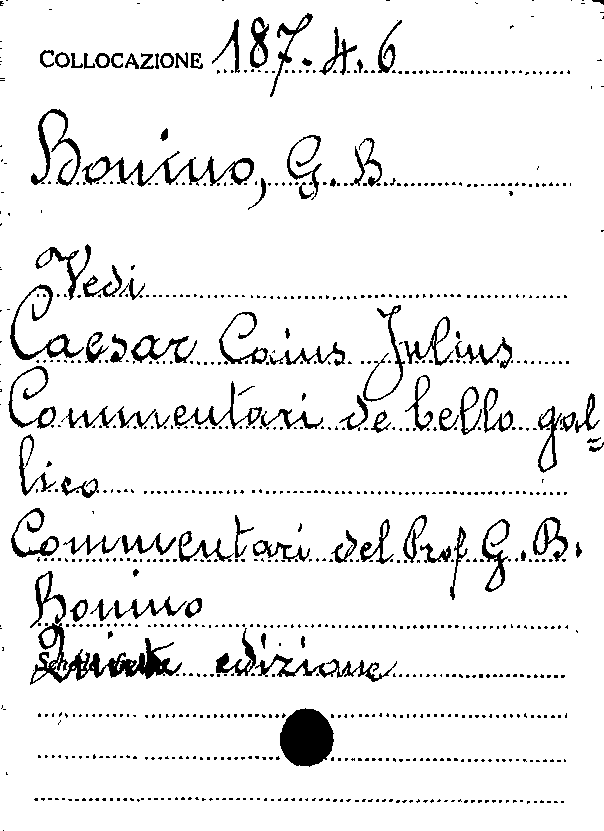 COLLOCAZIONE 187.4.6
Bonino, G. B.
Vedi
Caesar Caius Julius
Commentari de bello gal=
lico
Commentari del Prof G. B.
Bonino
Quinta edizione